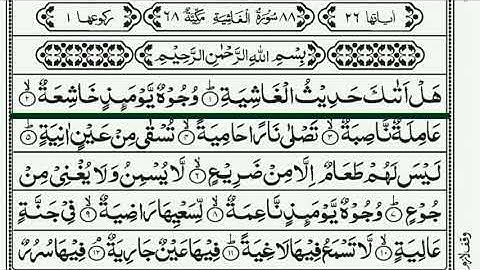 اٰیاتها ٢٦ ٨٨ سُوْرَةُ الْغَاشِيَةِ مَكِّيَّةٌ ٦٨ ركوعها ١
بِسْمِ اللهِ الرَّحْمٰنِ الرَّحِيْمِ
هَلْ اَتٰىكَ حَدِيْثُ الْغَاشِيَةِ ۝١ وُجُوْهٌ يَّوْمَىِٕذٍ خَاشِعَةٌ ۝٢
عَامِلَةٌ نَّاصِبَةٌ ۝٣ تَصْلٰى نَارًا حَامِيَةً ۝٤ تُسْقٰى مِنْ عَيْنٍ اٰنِيَةٍ ۝٥
لَيْسَ لَهُمْ طَعَامٌ اِلَّا مِنْ ضَرِيْعٍ ۝٦ لَّا يُسْمِنُ وَلَا يُغْنِيْ مِنْ
جُوْعٍ ۝٧ وُجُوْهٌ يَّوْمَىِٕذٍ نَّاعِمَةٌ ۝٨ لِّسَعْيِهَا رَاضِيَةٌ ۝٩ فِيْ جَنَّةٍ
عَالِيَةٍ ۝١٠ لَّا تَسْمَعُ فِيْهَا لَاغِيَةً ۝١١ فِيْهَا عَيْنٌ جَارِيَةٌ ۝١٢ فِيْهَا سُرُرٌ
وقف لازم